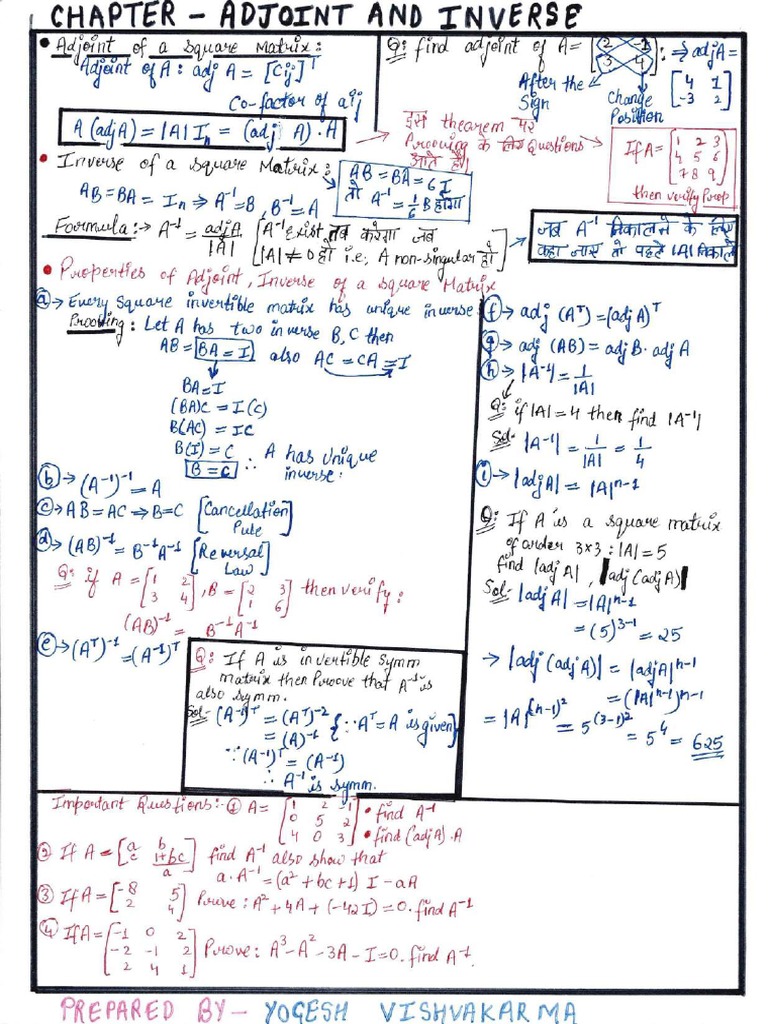 CHAPTER – ADJOINT AND INVERSE
• Adjoint of a Square Matrix:
Adjoint of A : adj A = [Cij]ᵀ
Co-factor of aij
A (adj A) = |A| Iₙ = (adj A) · A
Q: find adjoint of A = [2 -1
3 4] : ⇒ adj A =
[4 1
-3 2]
After the
Sign
Change
Position
इस theorem पर
Prooving के लिए Questions
आते हैं।
If A = [1 2 3
4 5 6
7 8 9]
then verify Prop
• Inverse of a square Matrix:
AB = BA = Iₙ ⇒ A⁻¹ = B, B⁻¹ = A
AB = BA = 6 I
तो A⁻¹ = 1/6 B होगा
Formula: → A⁻¹ = adj A / |A|
[A⁻¹ Exist तब करेगा जब
|A| ≠ 0 हो i.e; A non-singular हो]
जब A⁻¹ निकालने के लिए
कहा जाए तो पहले |A| निकाले
• Properties of Adjoint, Inverse of a square Matrix
(a) → Every Square invertible matrix has unique inverse:
Prooving : Let A has two inverse B, C then
AB = BA = I also AC = CA = I
BA = I
(BA)C = I(C)
B(AC) = IC
B(I) = C
B = C ∴ A has unique
inverse.
(b) → (A⁻¹)⁻¹ = A
(c) → AB = AC ⇒ B = C [Cancellation
Rule]
(d) → (AB)⁻¹ = B⁻¹A⁻¹ [Reversal
Law]
Q: if A = [1 2
3 4], B = [2 3
1 6] then verify:
(AB)⁻¹ = B⁻¹A⁻¹
(e) → (Aᵀ)⁻¹ = (A⁻¹)ᵀ
Q: If A is invertible symm
matrix then Proove that A⁻¹ is
also symm.
Sol- (A⁻¹)ᵀ = (Aᵀ)⁻² {∵ Aᵀ = A is given}
= (A)⁻¹
∵ (A⁻¹)ᵀ = (A⁻¹)
∴ A⁻¹ is symm.
(f) → adj (Aᵀ) = (adj A)ᵀ
(g) → adj (AB) = adj B · adj A
(h) → |A⁻¹| = 1/|A|
Q: if |A| = 4 then find |A⁻¹|
Sol- |A⁻¹| = 1/|A| = 1/4
(i) → |adj A| = |A|ⁿ⁻¹
Q: If A is a square matrix
of order 3×3 : |A| = 5
find |adj A| , |adj (adj A)|
Sol- |adj A| = |A|ⁿ⁻¹
= (5)³⁻¹ = 25
→ |adj (adj A)| = |adj A|ⁿ⁻¹
= (|A|ⁿ⁻¹)ⁿ⁻¹
= |A|^(n-1)² = 5^(3-1)² = 5⁴ = 625
Important Questions:- ① A = [1 2 1
0 5 2
4 0 3] • find A⁻¹
• find (adj A) · A
② If A = [a b
c (1+bc)/a] find A⁻¹ also show that
a · A⁻¹ = (a² + bc + 1) I - aA
③ If A = [-8 5
2 4] Prove : A² + 4A + (-42I) = 0 . find A⁻¹
④ If A = [-1 0 2
-2 -1 2
2 4 1] Prove : A³ - A² - 3A - I = 0 . find A⁻¹.
PREPARED BY – YOGESH VISHVAKARMA